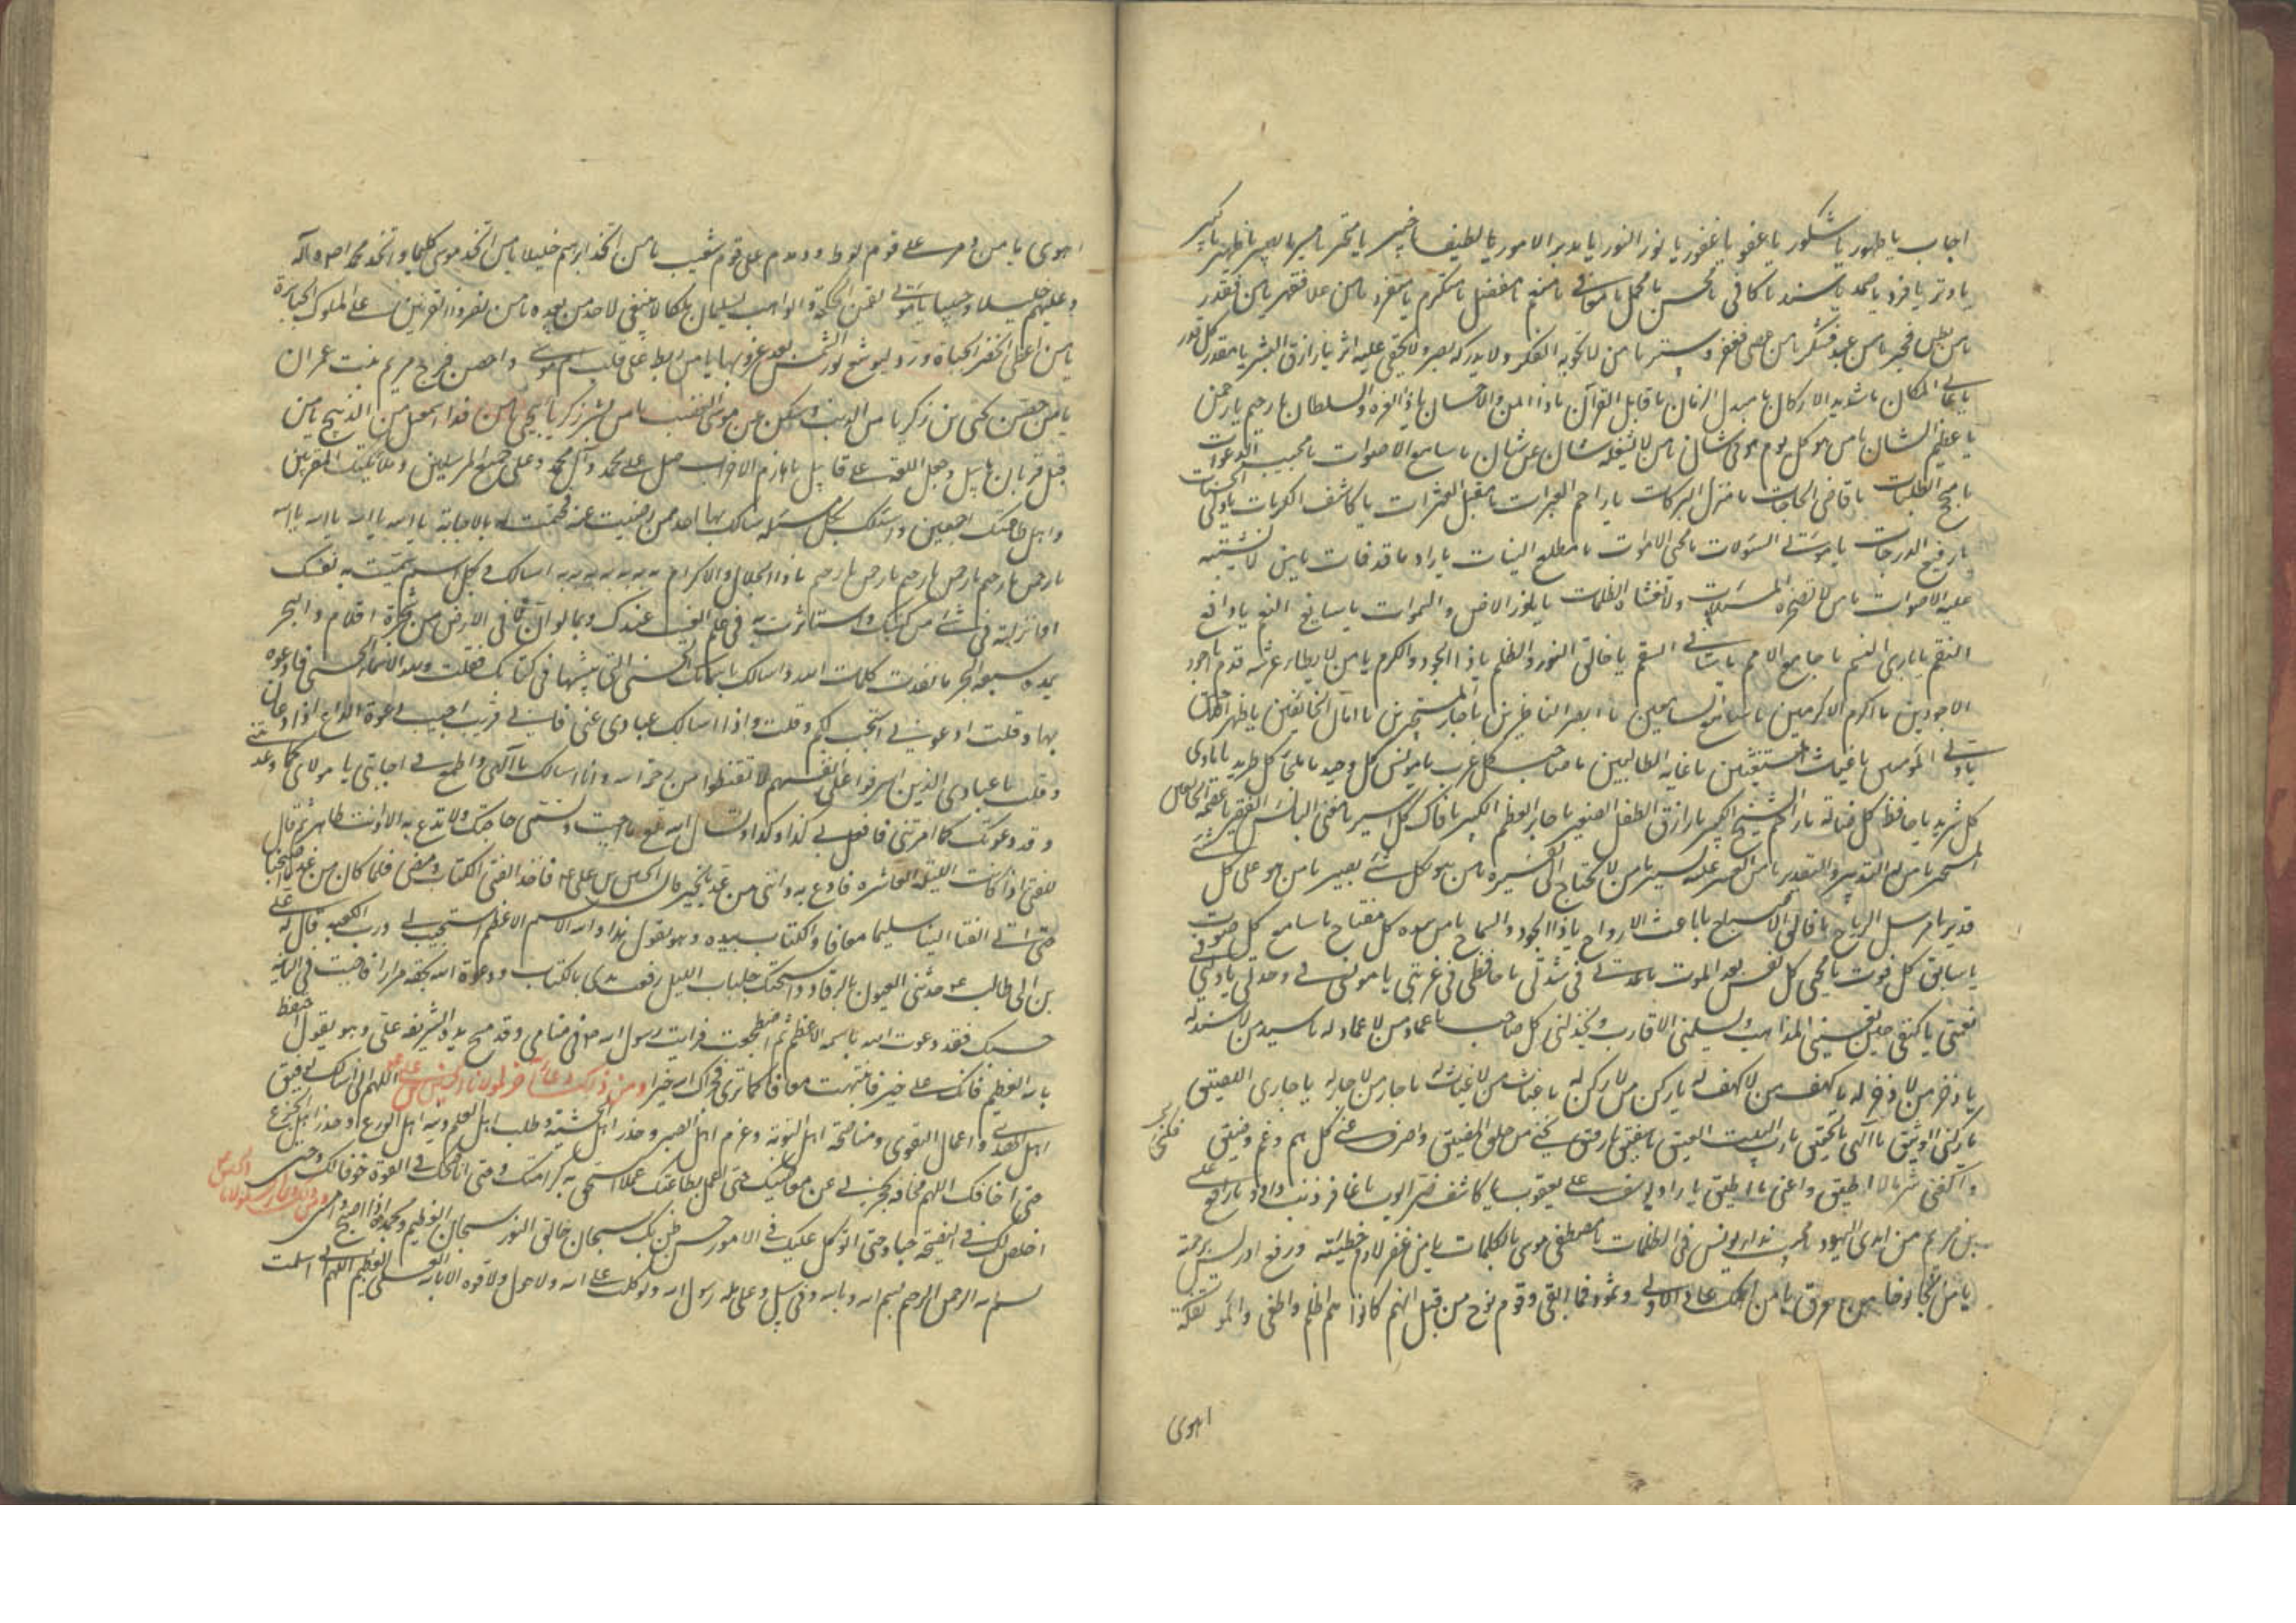 اجاب يا طهور يا شكور يا عفو يا غفور يا نور النور يا مدبر الامور يا لطيف يا خبير يا مجير يا منير يا بصير يا ظهير يا كبير
يا وتر يا فرد يا صمد يا سند يا كافى يا محسن يا مجمل يا معافى يا منعم يا مفضل يا متكرم يا متفرد يا من علا فقهر يا من ملك فقدر
يا من بطن فخبر يا من عبد فشكر يا من عصى فغفر و ستر يا من لا تحويه الفكر ولا يدركه بصر ولا يخفى عليه اثر يا رازق البشر يا مقدر كل قدر
يا عالى المكان يا شديد الاركان يا مبدل الزمان يا قابل القربان يا ذا المن والاحسان يا ذا العزه والسلطان يا رحيم يا رحمن
يا عظيم الشان يا من هو كل يوم هو فى شان يا من لا يشغله شان عن شان يا سامع الاصوات يا مجيب الدعوات
يا منجح الطلبات يا قاضى الحاجات يا منزل البركات يا راحم العبرات يا مقيل العثرات يا كاشف الكربات يا ولى الحسنات
يا رفيع الدرجات يا موتى السؤلات يا محيى الاموات يا مطلع النيات يا راد ما قد فات يا من لا تشتبه
عليه الاصوات يا من لا تضجره المسئلات ولا تغشاه الظلمات يا نور الارض والسموات يا سابغ النعم يا دافع
النقم يا بارئ النسم يا جامع الامم يا شافى السقم يا خالق النور والظلم يا ذا الجود والكرم يا من لا يطا عرشه قدم يا اجود
الاجودين يا اكرم الاكرمين يا اسمع السامعين يا ابصر الناظرين يا جار المستجيرين يا امان الخائفين يا ظهر اللاجين
يا ولى المؤمنين يا غياث المستغيثين يا غاية الطالبين يا صاحب كل غريب يا مونس كل وحيد يا ملجأ كل طريد يا ماوى
كل شريد يا حافظ كل ضالة يا راحم الشيخ الكبير يا رازق الطفل الصغير يا جابر العظم الكسير يا فاك كل اسير يا مغنى البائس الفقير يا عصمة الخائف
المستجير يا من له التدبير والتقدير يا من العسير عليه يسير يا من لا يحتاج الى تفسير يا من هو بكل شئ بصير يا من هو على كل شئ
قدير يا مرسل الرياح يا فالق الاصباح يا باعث الارواح يا ذا الجود والسماح يا من بيده كل مفتاح يا سامع كل صوت
يا سابق كل فوت يا محيى كل نفس بعد الموت يا عدتى فى شدتى يا حافظى فى غربتى يا مونسى فى وحدتى يا ولى فى
نعمتى يا كهفى حين تعيينى المذاهب و تسلمنى الاقارب و يخذلنى كل صاحب يا عماد من لا عماد له يا سند من لا سند له
يا ذخر من لا ذخر له يا كهف من لا كهف له يا ركن من لا ركن له يا غياث من لا غياث له يا جار من لا جار له يا جارى اللصيق
يا ركنى الوثيق يا الهى بالتحقيق يا رب البيت العتيق يا شفيق يا رفيق نجنى من حلق المضيق واصرف عنى كل هم و غم و ضيق
واكفنى شر ما لا اطيق واعنى على ما اطيق يا راد يوسف على يعقوب يا كاشف ضر ايوب يا غافر ذنب داود يا رافع عيسى
بن مريم من ايدى اليهود يا مجيب نداء يونس فى الظلمات يا مصطفى موسى بالكلمات يا من غفر لادم خطيئته ورفع ادريس برحمته
يا من نجا نوحا من الغرق يا من اهلك عادا الاولى وثمود فما ابقى وقوم نوح من قبل انهم كانوا هم اظلم واطغى والمؤتفكة
اهوى
اهوى يا من دمر على قوم لوط ودمدم على قوم شعيب يا من اتخذ ابرهيم خليلا يا من اتخذ موسى كليما واتخذ محمدا صلى و آله
وعليهم حبيبا يا موتى لقمن الحكمة والواهب لسليمان ملكا لا ينبغى لاحد من بعده يا من نصر ذا القرنين على الملوك الجبابرة
يا من اعطى الخضر الحياة ورد ليوشع نور الشمس بعد غروبها يا من ربط على قلب ام موسى واحصن فرج مريم بنت عمران
يا من حصن يحيى بن زكريا من الذنب وسكن عن موسى الغضب يا من بشر زكريا بيحيى يا من فدا اسمعيل من الذبح يا من
قبل قربان هابيل وجعل اللعنة على قابيل يا هازم الاحزاب صل على محمد وآل محمد وعلى جميع المرسلين وملائكتك المقربين
واهل طاعتك اجمعين واسئلك بكل مسئلة سالك بها احد ممن رضيت عنه فحتمت له بالاجابة يا الله يا الله يا الله
يا رحمن يا رحيم يا رحمن يا رحيم يا رحمن يا رحيم يا ذا الجلال والاكرام به به به به به به اسالك بكل اسم سميت به نفسك
او انزلته فى شئ من كتبك او استاثرت به فى علم الغيب عندك وبما لو ان ما فى الارض من شجرة اقلام والبحر
يمده سبعة ابحر ما نفدت كلمات الله واسالك باسمائك الحسنى التى بينتها فى كتابك فقلت ولله الاسماء الحسنى فادعوه
بها وقلت ادعونى استجب لكم وقلت واذا سالك عبادى عنى فانى قريب اجيب دعوة الداع اذا دعان
وقلت يا عبادى الذين اسرفوا على انفسهم لا تقنطوا من رحمة الله وانا اسالك يا الهى واطمع فى اجابتى يا مولاى كما وعدتنى
وقد دعوتك كما امرتنى فافعل بى كذا وكذا وتسال الله تع ما احببت وتسمى حاجتك ولا تدع به الا وانت طاهر ثم قال
للفتى اذا كانت الليلة العاشره فادع به واتنى من غد بالخبر قال الحسين بن على ع فاخذ الفتى الكتاب ومضى فلما كان من غد ما اصبحنا
حتى اتى الفتا الينا سليما معافا والكتاب بيده وهو يقول هذا والله الاسم الاعظم استجيب لى ورب الكعبه قال له على
بن ابى طالب ع حدثنى العيون بالرقاد واستحلك جلباب الليل رفعت يدى بالكتاب ودعوت الله بحقه مرارا فاجبت فى الثانيه
حسبك فقد دعوت الله باسمه الاعظم ثم اضطجعت فرايت رسول الله ص فى منامى وقد مسح يده الشريفه على وهو يقول احتفظ
بالله العظيم فانك على خير فانتبهت معافا كما ترى فجزاك الله خيرا ومن ذلك دعاء آخر لمولانا الحسين بن على ع اللهم انى اسالك توفيق
اهل الهدى واعمال التقوى ومناصحة اهل التوبة وعزم اهل الصبر وحذر اهل الخشية وطلب اهل العلم وزينة اهل الورع وحذر اهل الجزع
حتى اخافك اللهم مخافة تحجزنى عن معاصيك حتى اعمل بطاعتك عملا استحق به كرامتك وحتى اناصحك فى التوبة خوفا لك وحتى
اخلص لك فى النصيحة حبا وحتى اتوكل عليك فى الامور حسن ظن بك سبحان خالق النور سبحان الله العظيم وبحمده اذا اصبح وامسى
بسم الله الرحمن الرحيم بسم الله وبالله وفى سبيل الله وعلى ملة رسول الله وتوكلت على الله ولا حول ولا قوة الا بالله العلى العظيم اللهم انى اسلمت